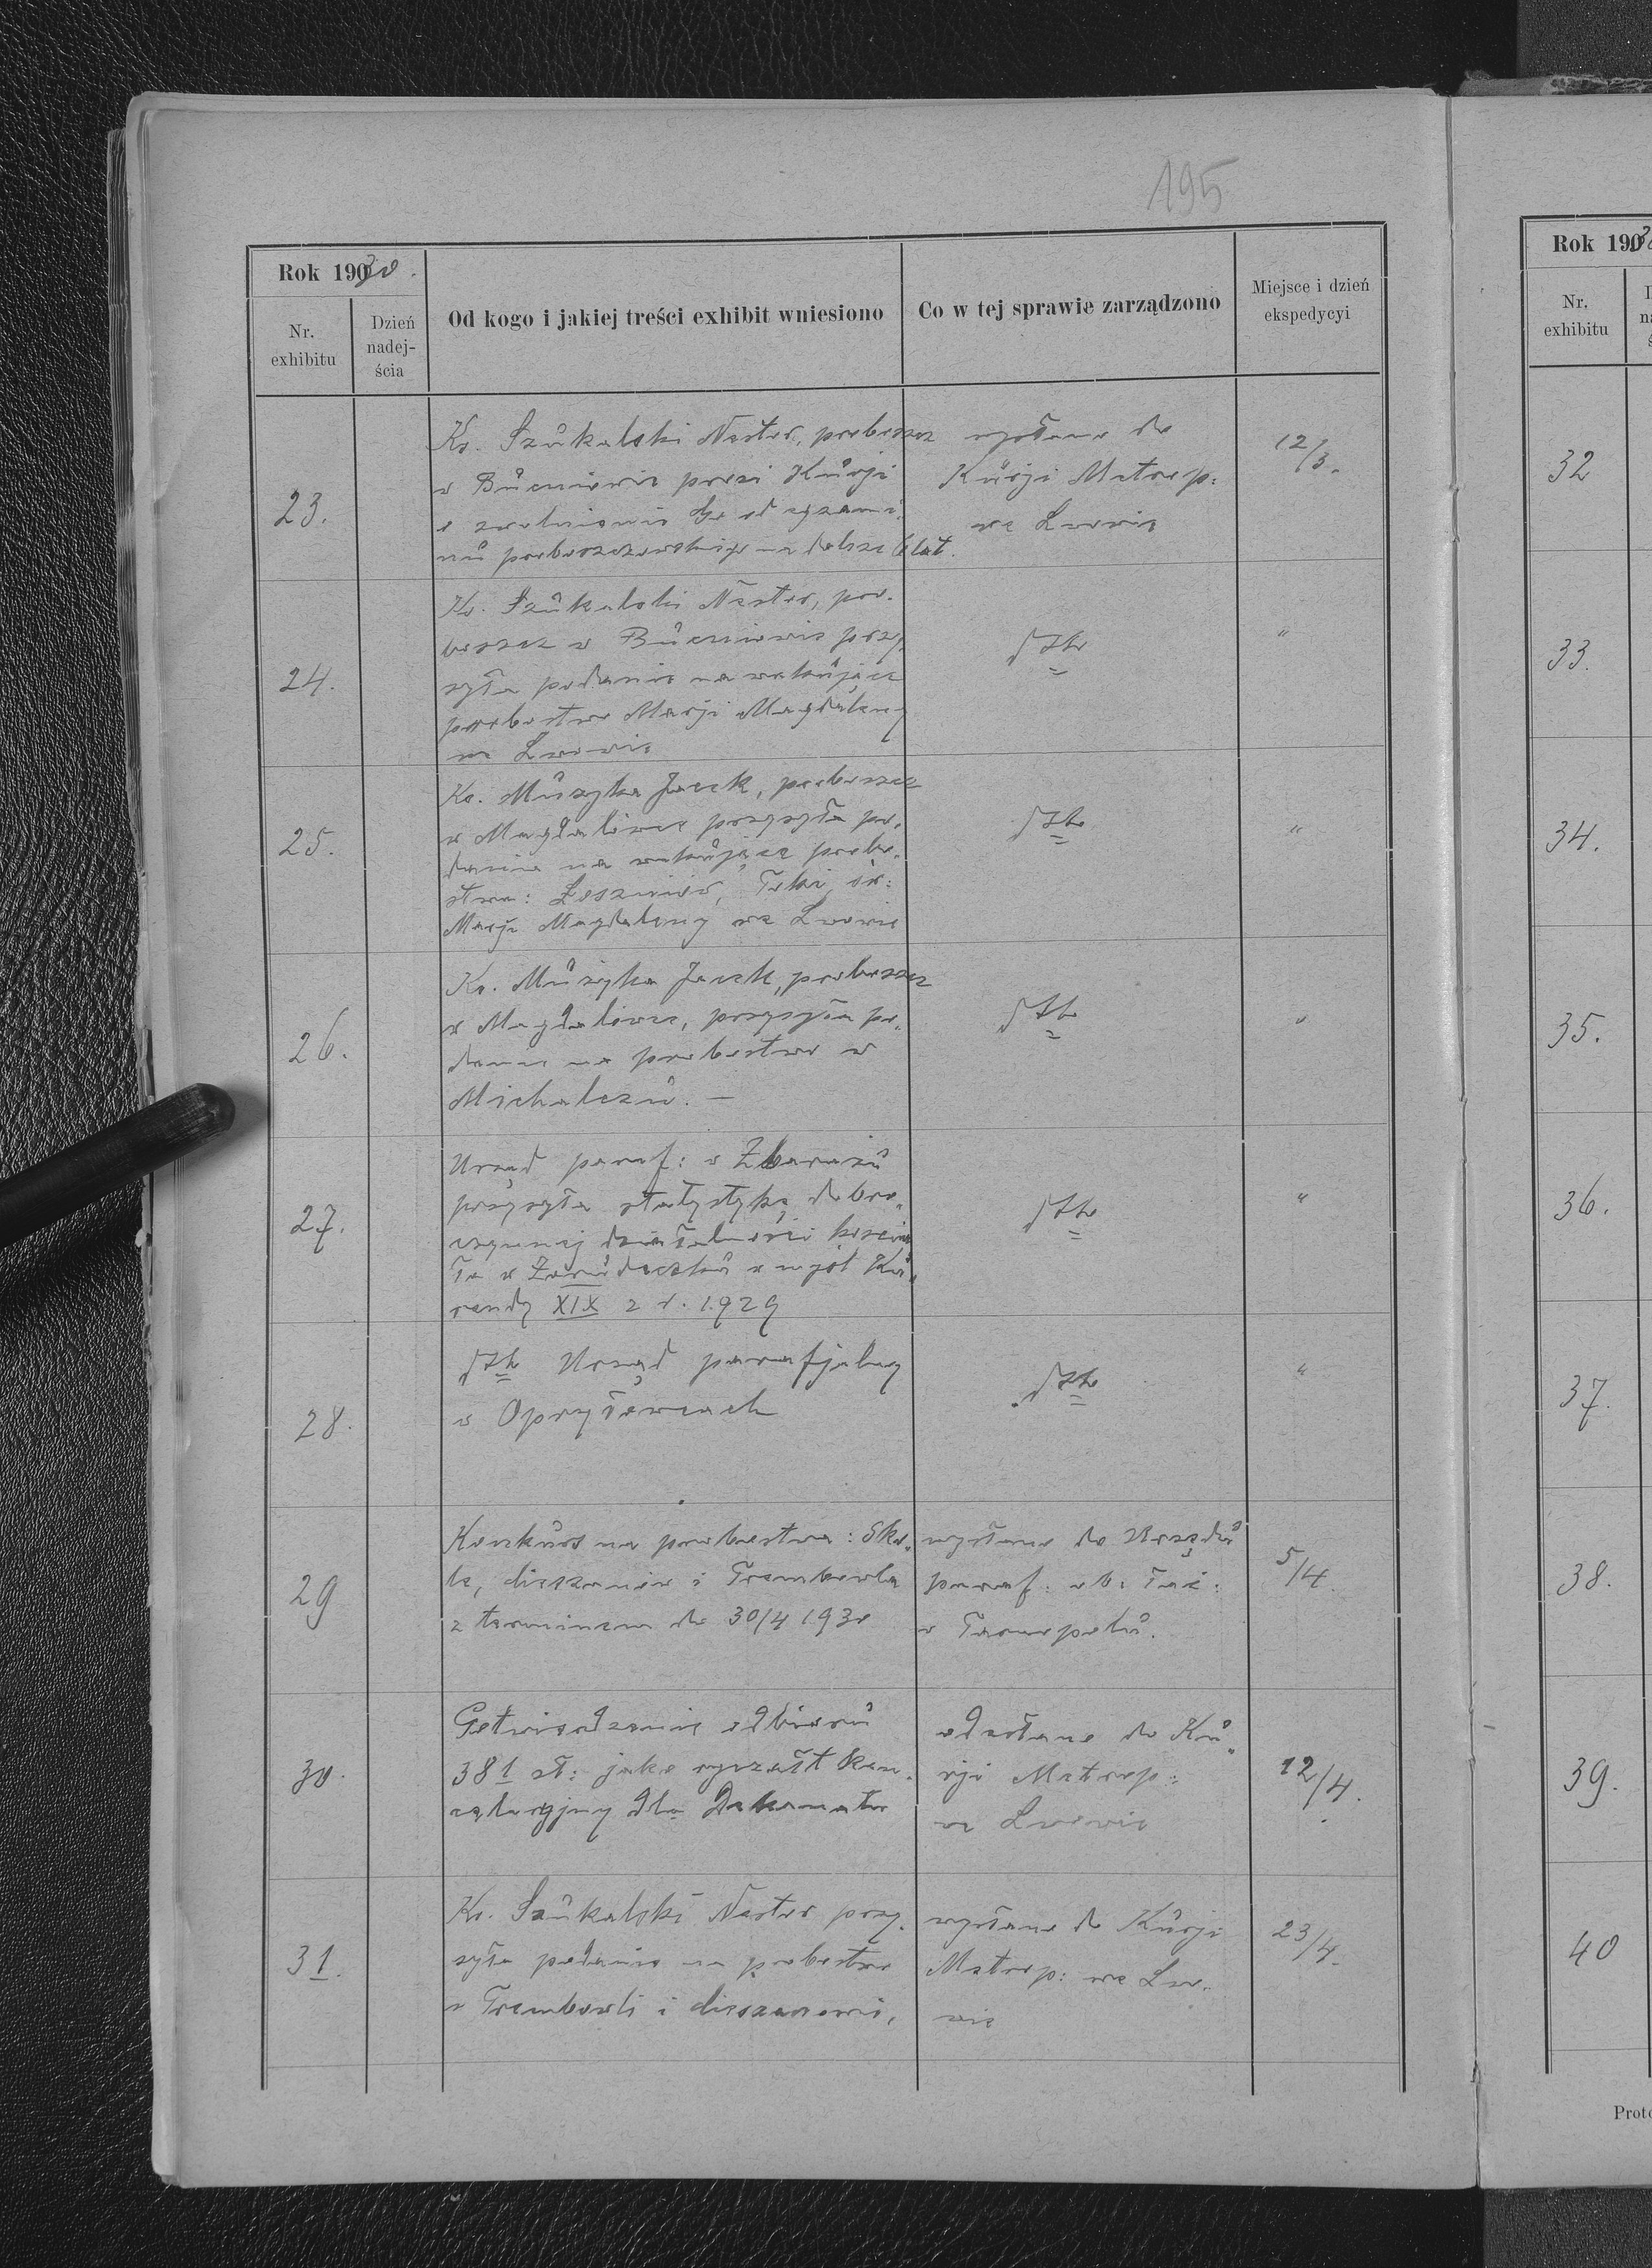 195
Rok 1930.
Nr. exhibitu
Dzień nadejścia
Od kogo i jakiej treści exhibit wniesiono
Co w tej sprawie zarządzono
Miejsce i dzień ekspedycyi
23.
Ks. Szukalski Nestor, proboszcz
w Bucniowie prosi Kurji
o zwolnienie Go od egzami-
nu proboszczowskiego na dalsze 6 lat.
wysłano do
Kurji Metrop:
we Lwowie
12/3.
24.
Ks. Szukalski Nestor, pro-
boszcz w Bucniowie przy-
syła podanie na wakujące
probostwo Marji Magdaleny
we Lwowie
dtto
"
25.
Ks. Muzyka Jacek, proboszcz
w Magdalówce przysyła po-
dania na wakujące probo-
stwa: Leszniów, Toki, św:
Marji Magdaleny we Lwowie
dtto
"
26.
Ks. Muzyka Jacek, proboszcz
w Magdalówce, przysyła po-
danie na probostwo w
Michalczu. —
dtto
"
27.
Urząd paraf: w Zbarażu
przysyła statystykę dobro-
czynnej działalności kościo-
ła w Zarudeczku w myśl Ku-
rendy XIX z r. 1929
dtto
"
28.
dtto Urząd parafjalny
w Opryłowcach
dtto
"
29
Konkurs na probostwa: Ska-
la, Cieszanów i Trembowla
z terminem do 30/4 1930
wysłano do Urzędu
paraf: ob: łać:
w Tarnopolu.
5/4.
30.
Potwierdzenie odbioru
381 zł: jako ryczałt kan-
celaryjny dla Dekanatu
odesłano do Ku-
rji Metrop:
we Lwowie
12/4.
31.
Ks. Szukalski Nestor przy-
syła podanie na probostwo
w Trembowli i Cieszanowie,
wysłano do Kurji
Metrop: we Lwo-
wie
23/4.
Rok 193
Nr. exhibitu
32
33.
34.
35.
36.
37.
38.
39.
40
Proto